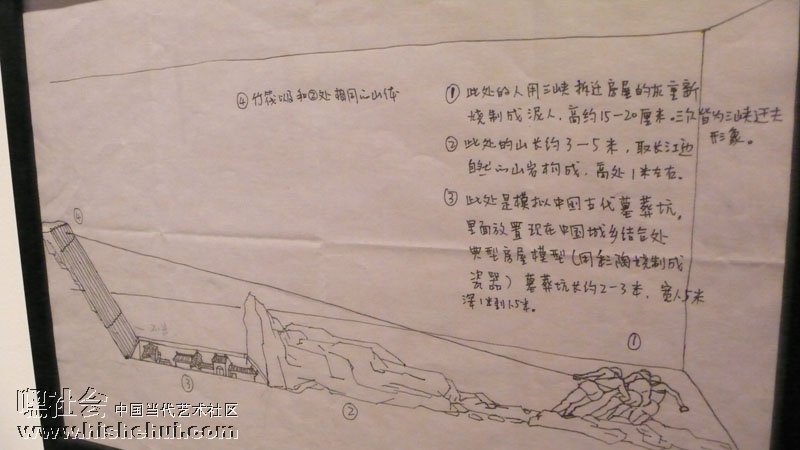 ④ 竹筏以及和②处相同的山体
① 此处的人用三峡拆迁房屋的灰重新
烧制成泥人,高约15-20厘米。三次皆为三峡迁去
形象。
② 此处的山长约3-5米,取长江边
自然的山岩构成,高处1米左右。
③ 此处是模拟中国古代墓葬坑,
里面放置现在中国城乡结合处
典型房屋模型(用彩陶烧制成
瓷器)墓葬坑长约2-3米,宽1.5米
深1米到1.5米。
④
③
②
①
嘿社会 中国当代艺术社区
www.hishehui.com